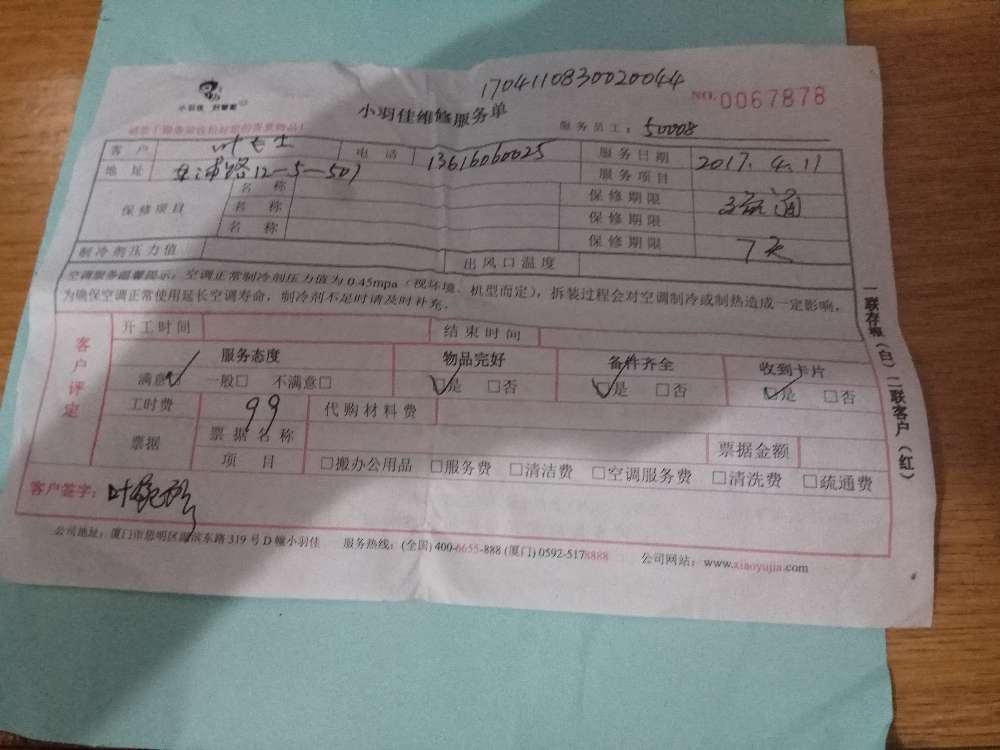 1704110830020044
小羽佳 好管家
小羽佳维修服务单
NO. 0067878
服务员工: 50008
客户 叶女士 电话 13616060025 服务日期 2017.4.11
地址 12-5-501 服务项目
保修项目 名称 保修期限
名称 保修期限
名称 保修期限 7天
制冷剂压力值 出风口温度
空调服务温馨提示:空调正常制冷剂压力值为0.45mpa(视环境、机型而定),拆装过程会对空调制冷或制热造成一定影响,
为确保空调正常使用延长空调寿命,制冷剂不足时请及时补充.
客户评定
开工时间 结束时间
服务态度 物品完好 备件齐全 收到卡片
满意☑ 一般□ 不满意□ ☑是 □否 ☑是 □否 ☑是 □否
工时费 99 代购材料费
票据 票据名称 票据金额
项目 □搬办公用品 □服务费 □清洁费 □空调服务费 □清洗费 □疏通费
客户签字:
公司地址:厦门市思明区湖滨东路319号D幢小羽佳 服务热线:(全国)400-6655-888 (厦门)0592-5178888 公司网站:www.xiaoyujia.com
一联存根(白)二联客户(红)